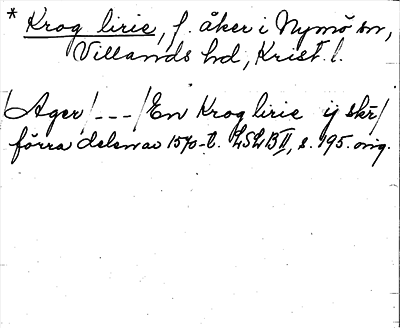 * Krog lirie, f. åker i Nymö sn,
Villands hd, Krist. l.
/Ager/ --- /En Krog lirie ij skr/
förra delen av 1570-t. LSLB II, s. 195. orig.